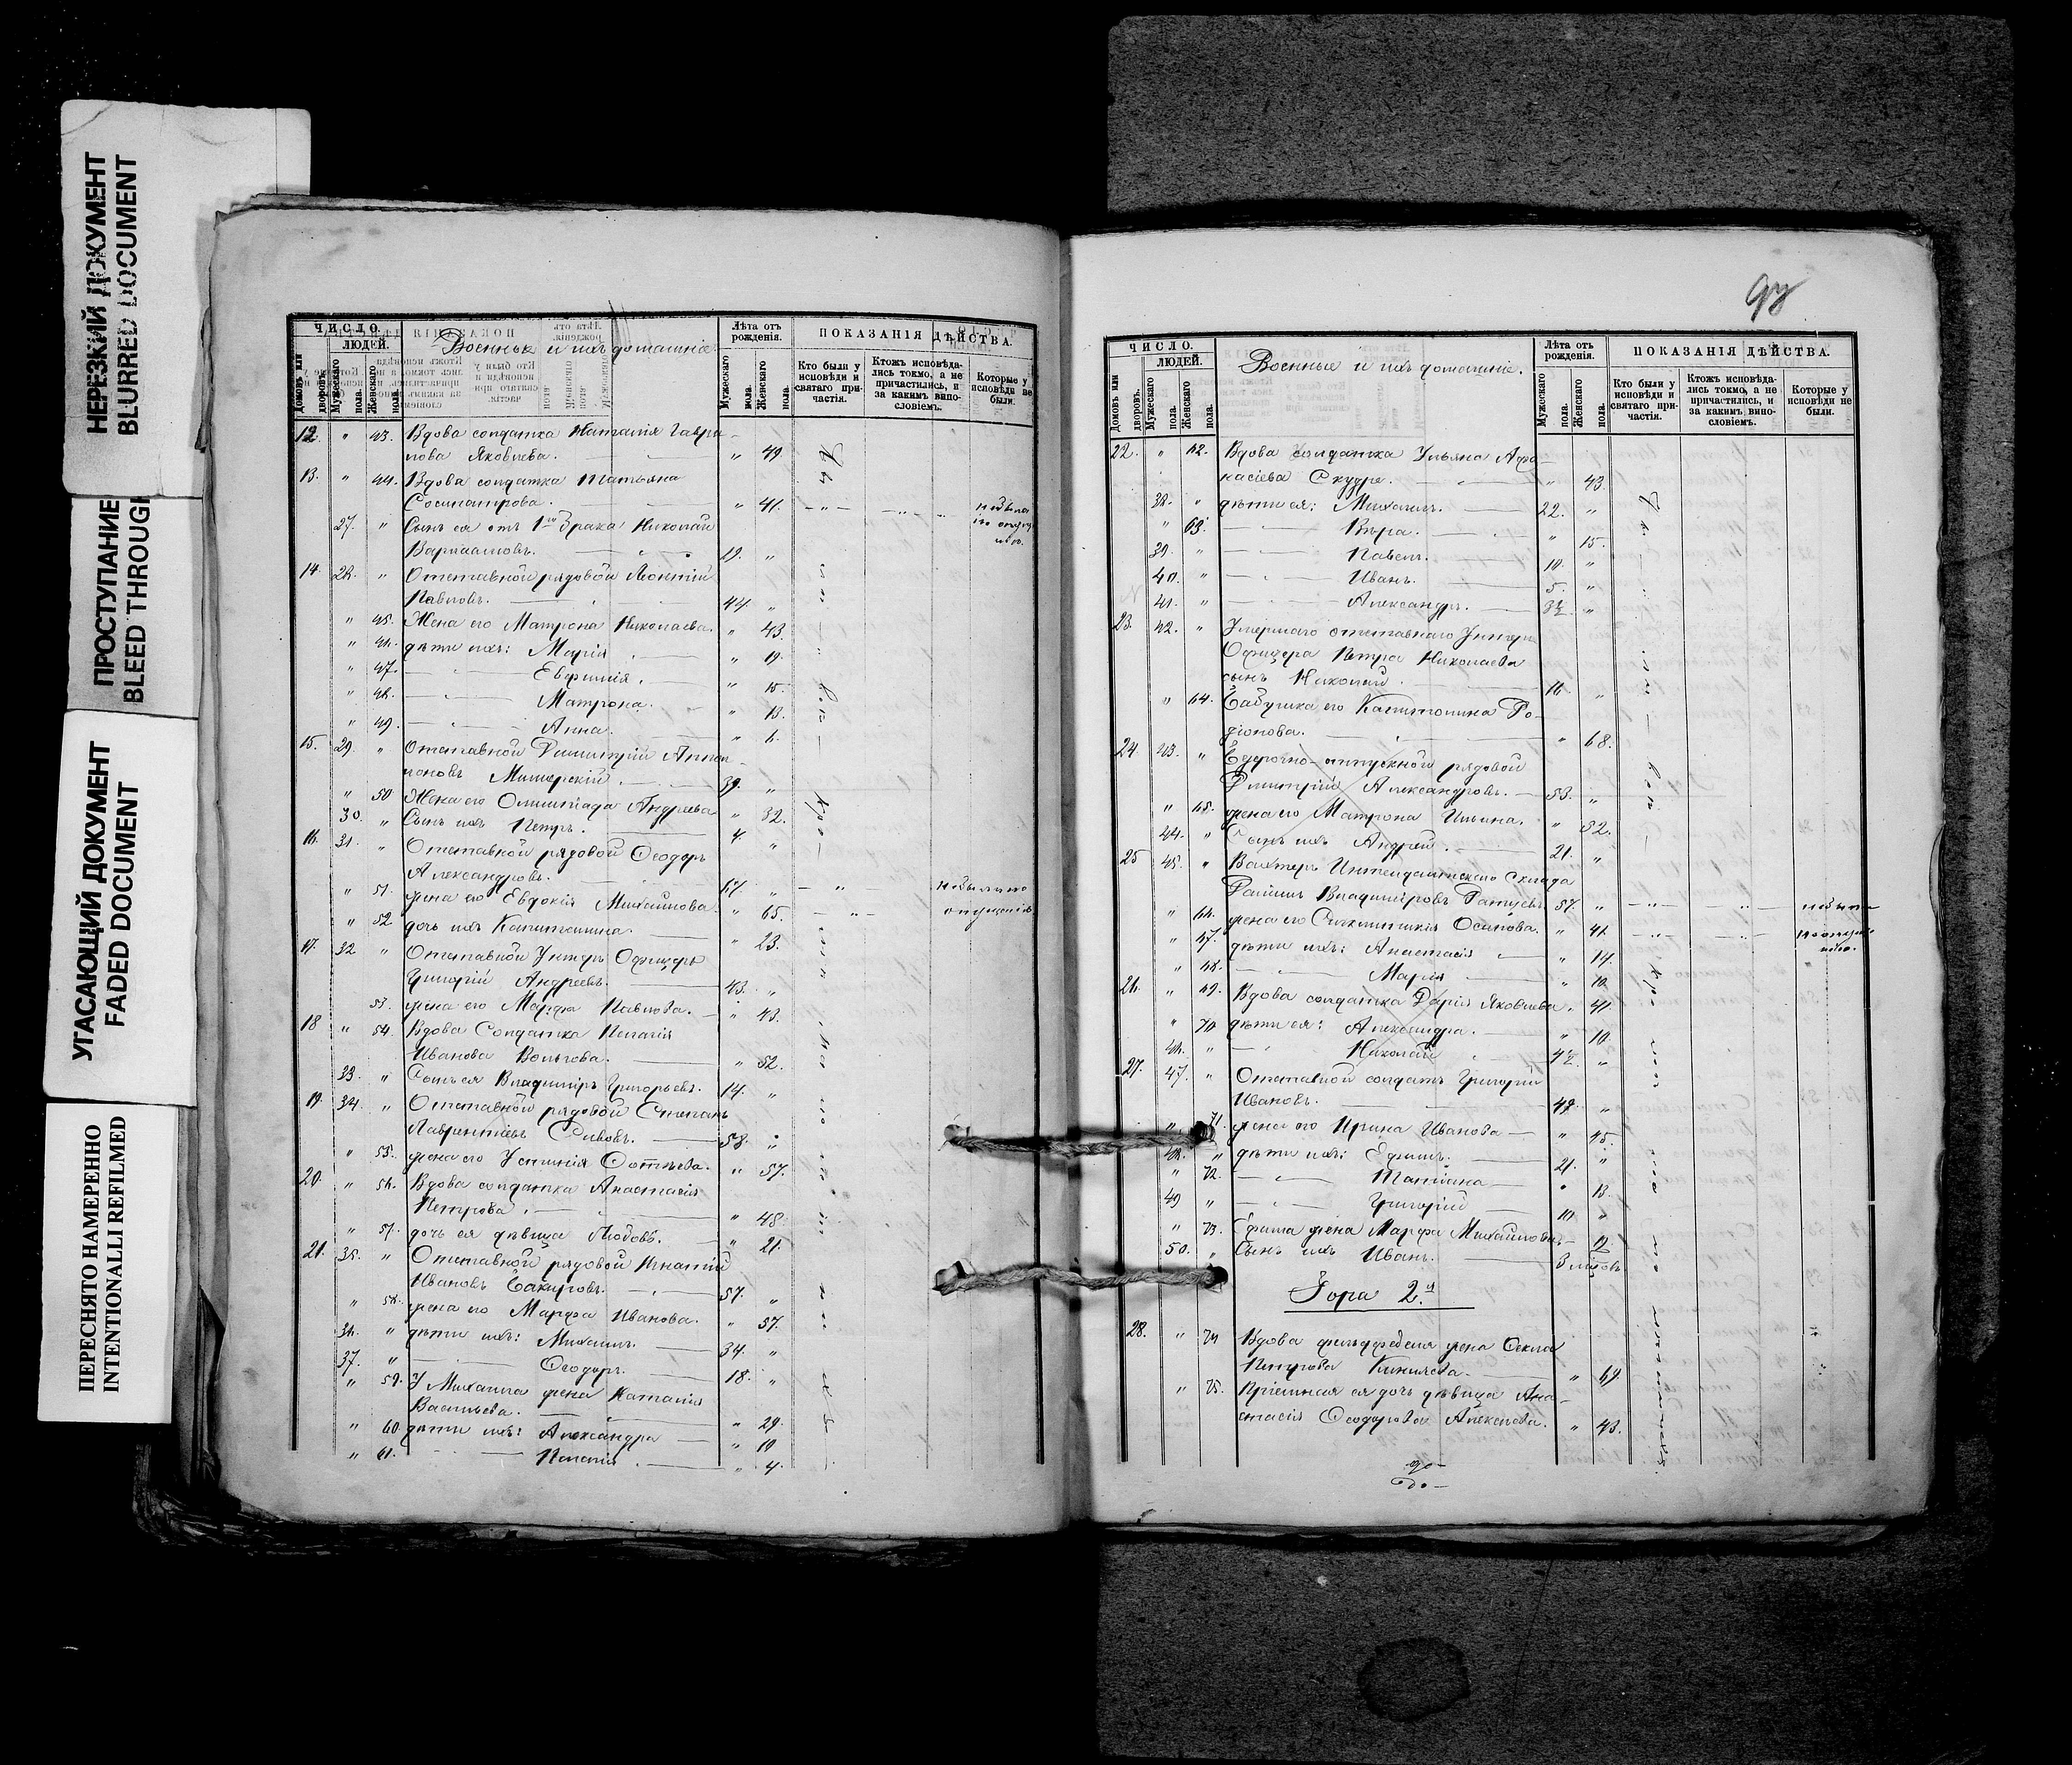 НЕРЕЗКИЙ ДОКУМЕНТ
BLURRED DOCUMENT
ПРОСТУПАНИЕ
BLEED THROUGH
УГАСАЮЩИЙ ДОКУМЕНТ
FADED DOCUMENT
ПЕРЕСНЯТО НАМЕРЕННО
INTENTIONALLI REFILMED
ЧИСЛО.
ЛЮДЕЙ.
Домовъ или дворовъ.
Мужескаго пола.
Женскаго пола.
Военные и ихъ домашніе
Лѣта отъ рожденія.
Мужескаго пола.
Женскаго пола.
ПОКАЗАНІЯ ДѢЙСТВА.
Кто были у исповѣди и святаго причастія.
Ктожъ исповѣдались токмо, а не причастились, и за какимъ винословіемъ.
Которые у исповѣди не были.
12. " 43. Вдова солдатка Наталія Гаври-
лова Яковлева. " 49.
13. " 44. Вдова солдатка Татьяна
Сосипатрова. " 41.
27. " Сынъ ея отъ 1го брака Николай
Варлаамовъ. 19. "
14. 28. " Отставной рядовой Леонтій
Павловъ. 44. "
" 45. Жена его Матрона Николаева. " 43.
" 46. дѣти ихъ: Марія " 19.
" 47. Евфимія. " 15.
" 48. Матрона. " 13.
" 49. Анна. " 6.
15. 29. " Отставной Димитрій
39. "
" 50 Жена его Олимпіада Андреева " 32.
30. " Сынъ ихъ Петръ. 4. "
16. 31. " Отставной рядовой Ѳеодоръ
Александровъ. 67. "
" 51. жена его Евдокія Михайлова. " 65.
" 52 дочь ихъ Капитолина. " 23.
17. 32 " Отставной Унтеръ Офицеръ
Григорій Андреевъ. 43. "
53. жена его Марфа Павлова. " 43.
18 " 54. Вдова Солдатка Пелагія
Иванова Волкова. " 52.
33. " Сынъ ея Владиміръ Григорьевъ. 14. "
19. 34. " Отставной рядовой Степанъ
Лаврентіевъ 58. "
" 55. жена его Устинія " 57.
20. " 56. Вдова солдатка Анастасія
Петрова. " 48.
" 57. дочь ея дѣвица Любовь. " 21.
21. 35. " Отставной рядовой Игнатій
Ивановъ 57. "
" 58. жена его Марфа Иванова. " 57.
36. " дѣти ихъ: Михаилъ. 34. "
37. " Ѳеодоръ. 18. "
" 59. У Михаила жена Наталія
Васильева. " 29.
" 60. дѣти ихъ: Александра " 10
" 61. Пелагія. " 4.
93
ЧИСЛО.
ЛЮДЕЙ.
Домовъ или дворовъ.
Мужескаго пола.
Женскаго пола.
Военные и ихъ домашніе.
Лѣта отъ рожденія.
Мужескаго пола.
Женскаго пола.
ПОКАЗАНІЯ ДѢЙСТВА.
Кто были у исповѣди и святаго причастія.
Ктожъ исповѣдались токмо, а не причастились, и за какимъ винословіемъ.
Которые у исповѣди не были.
22. " 62. Вдова солдатка Ульяна Афа-
насіева " 43.
38. " дѣти ея: Михаилъ. 22. "
" 63. Вѣра. " 15.
39. " Павелъ. 10. "
40. " Иванъ. 5. "
41. " Александръ.
23. 42. " Умершаго отставнаго Унтеръ
Офицера Петра Николаева
сынъ Николай. 16. "
" 64. Бабушка его Капитолина Ро-
діонова. " 68.
24. 43. " рядовой
Димитрій Александровъ. 53. "
" 65. жена его Матрона Ильина. " 52.
44. " Сынъ ихъ Андрей. 21. "
25 45. " Вахтеръ Интендантскаго склада
Владиміровъ 57. "
" 66. жена его Осипова. " 42.
" 67. дѣти ихъ: Анастасія " 14.
" 68. Марія " 10.
26. " 69. Вдова солдатка Дарія Яковлева. " 41.
" 70 дѣти ея: Александра. " 10
46. " Николай
27. 47. " Отставной солдатъ Григорій
Ивановъ. 49. "
" 71. жена его Ирина Иванова " 45.
48. " дѣти ихъ: Ефимъ. 21. "
" 72. Татіана " 13.
49 " Григорій 10. "
" 73. Ефима жена Марфа Михайлова
50. " Сынъ ихъ Иванъ. 3 мѣсяцовъ
Гора 2я
28. " 74 Вдова фельдфебеля жена Ѳекла
Петрова " 69
" 75. Пріемная ея дочь дѣвица Ана-
стасія Ѳеодорова Алексѣева. " 43.